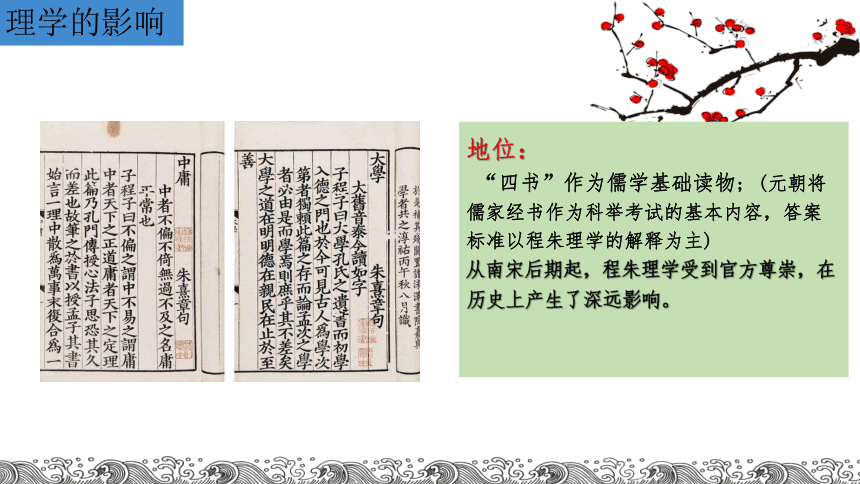 理学的影响
中庸
朱熹章句
中者不偏不倚無過不及之名庸
平常也
子程子曰不偏之謂中不易之謂庸
中者天下之正道庸者天下之定理
此篇乃孔門傳授心法子思恐其久
而差也故筆之於書以授孟子其書
始言一理中散爲萬事末復合爲一
學者共之淳祐丙午秋八月識
大學
朱熹章句
大舊音泰今讀如字
子程子曰大學孔氏之遺書而初學
入德之門也於今可見古人爲學次
第者獨賴此篇之存而論孟次之學
者必由是而學焉則庶乎其不差矣
大學之道在明明德在親民在止於至
善
地位：
“四书”作为儒学基础读物；(元朝将
儒家经书作为科举考试的基本内容，答案
标准以程朱理学的解释为主)
从南宋后期起，程朱理学受到官方尊崇，在
历史上产生了深远影响。